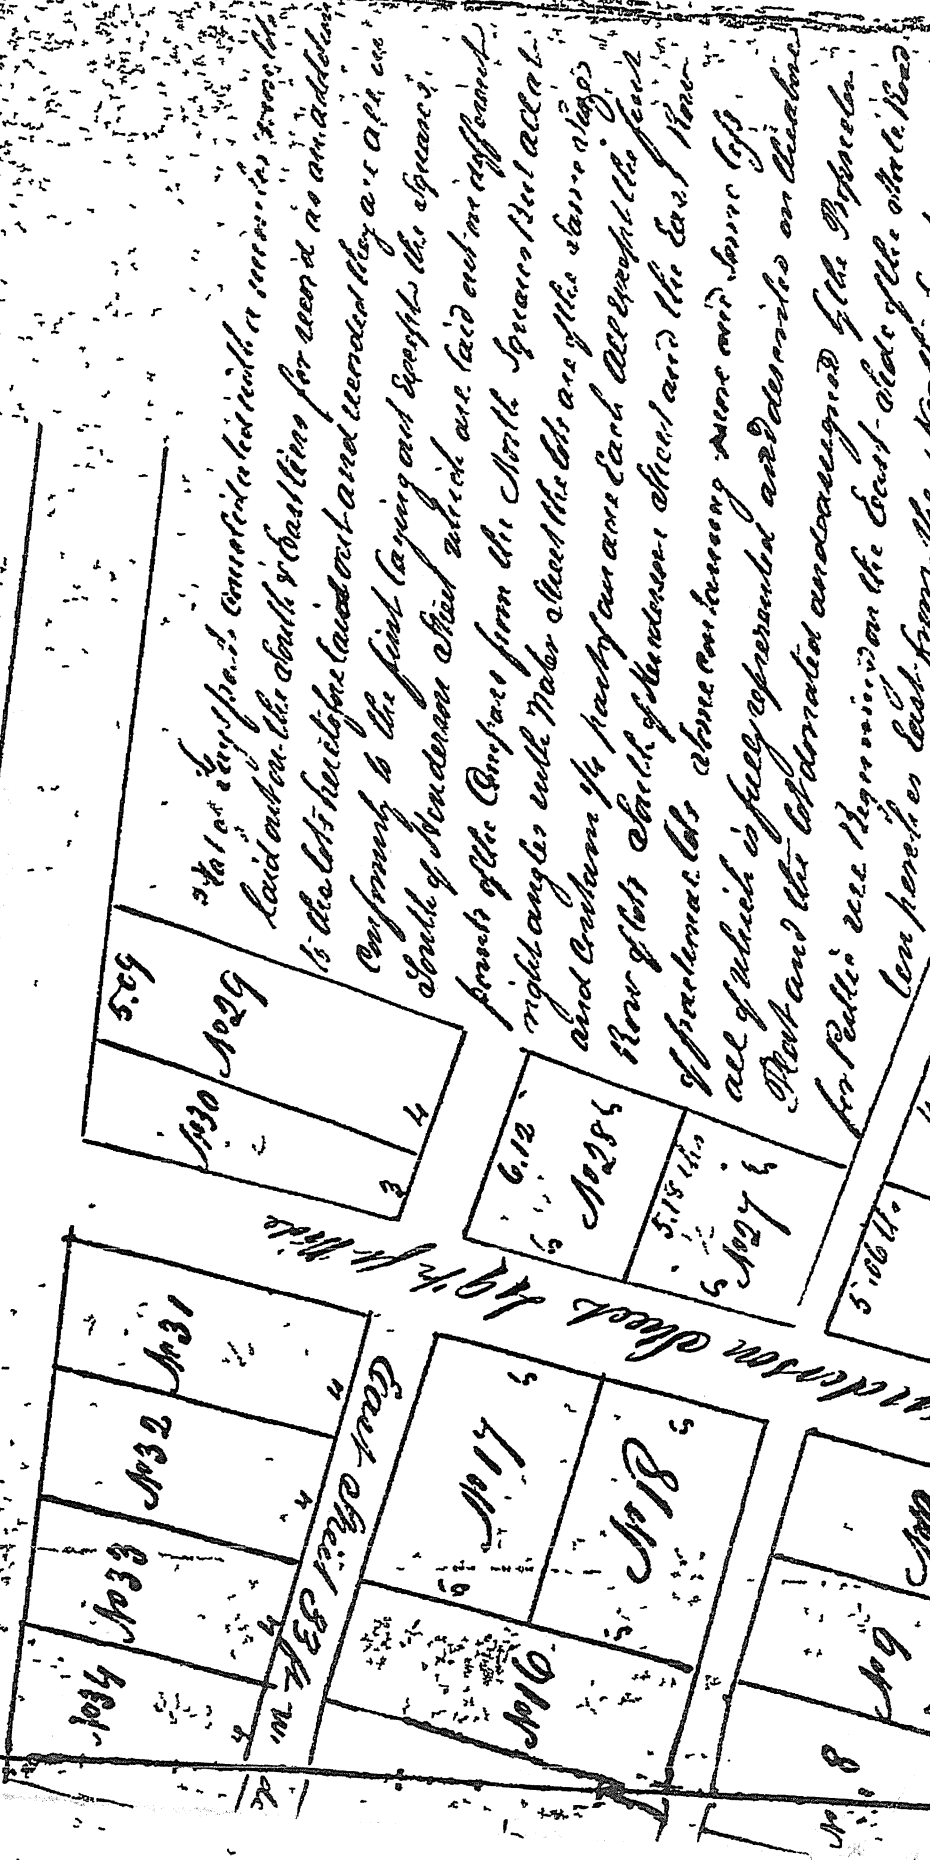 Plat of Laysford, Consolidated with a number
laid out on the South & East lines for  as an addition
to the lots heretofore laid out and  they are all in
Conformity to the first laying out Except the Squares
South of Henderson Street which are laid out  different
points of the Compass from the North Squares But all at
right angles with Water Street the lots are of the same
and Contain  part of an acre Each all Except the first
Row of lots South of Henderson Street and the East Row
of fractional lots Some containing more and some less
all of which is fully represented and described on the above
Plat and the lot donated and assigned by the Proprietor
for Public use Beginning on the East side of the State Road
ten perches East from the
5.09
No 29
No 30
4
3
6.12
No 28
5
5
5.18
No 27
5
5
5.06
49 ft Wide
Henderson Street
No 31
4
No 32
4
No 33
4
No 34
4
East Street 33 ft
No 17
5
5
No 18
5
5
No 16
No 9
No 8